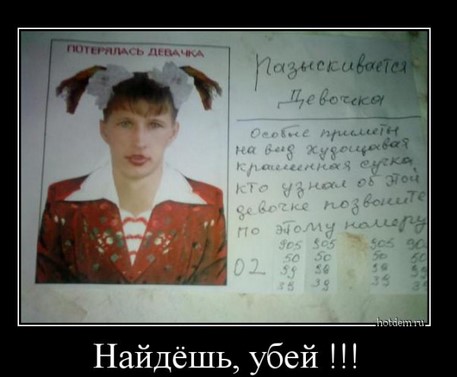 ПОТЕРЯЛАСЬ ДЕВАЧКА
Разыскивается
Девочка
Особые приметы
на вид худощавая
крашенная сучка
кто узнал об этой
девочке позвоните
по этому номеру
905 905 905 90
50 50 50 50
02 39 39 39 39
39 39 39 39
hotdem.ru
Найдёшь, убей !!!